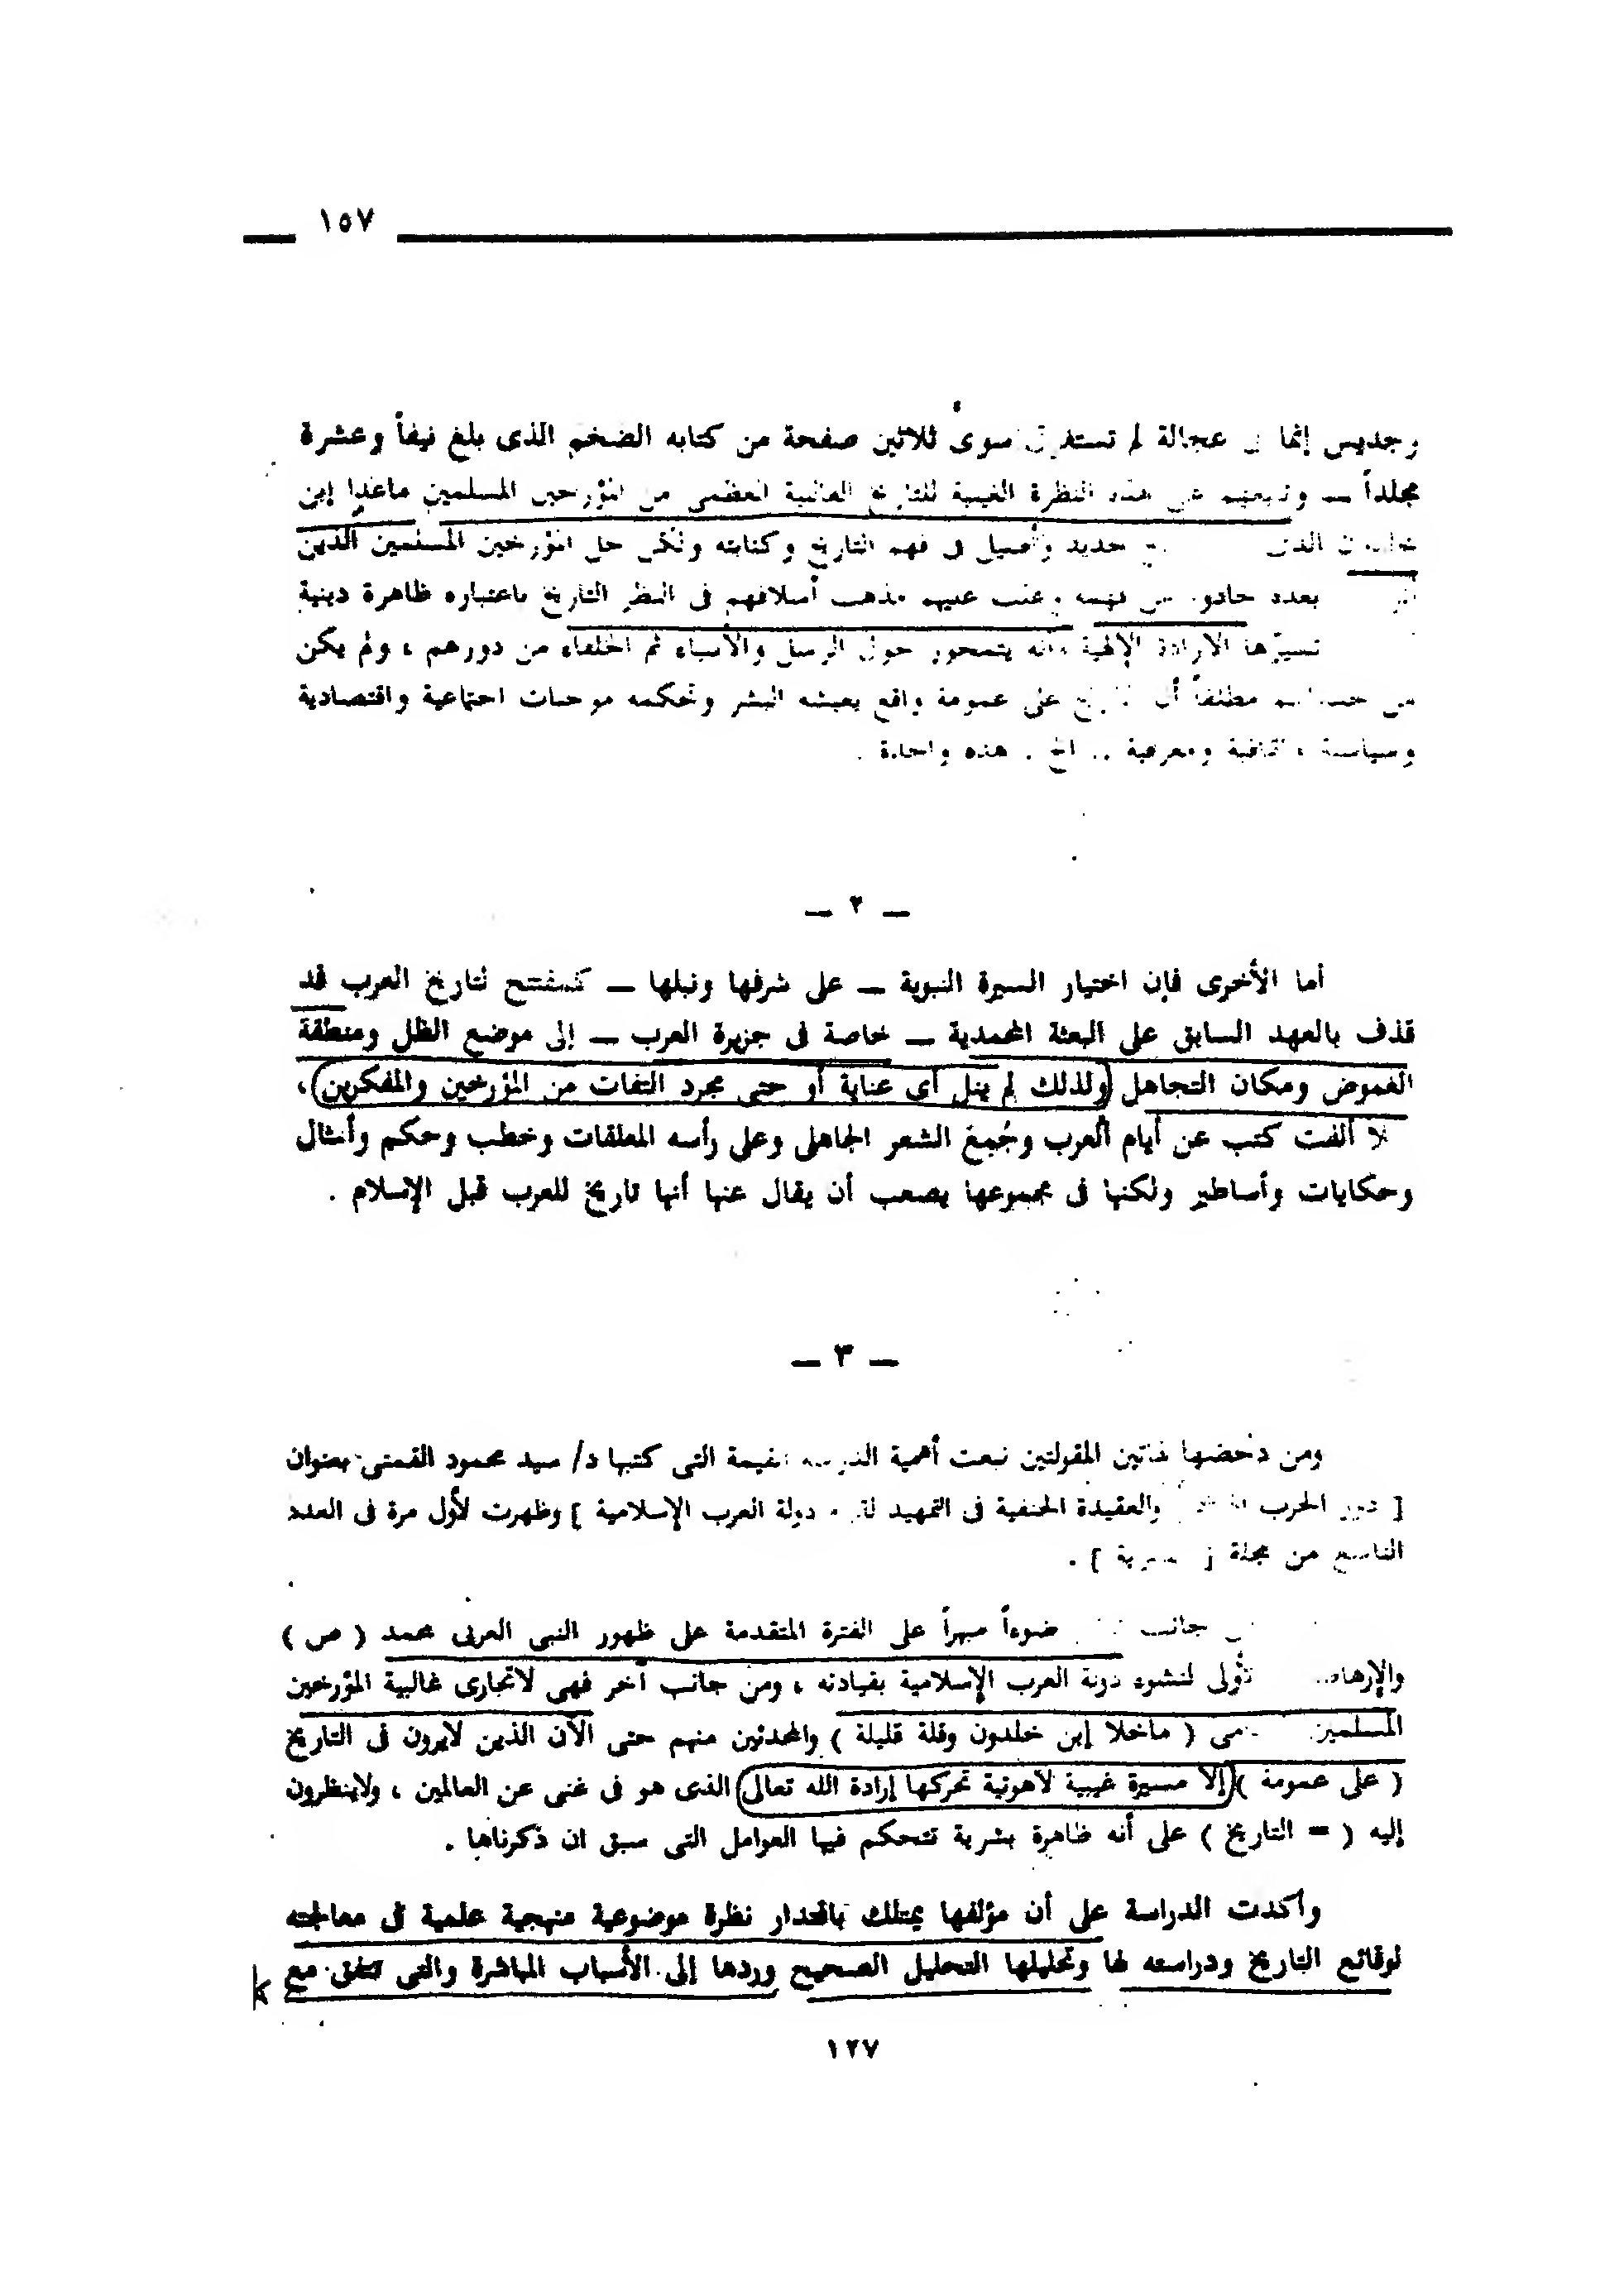 ١٥٧
وجديس إنما عجالة لم سوى ثلاثين صفحة من كتابه الضخم الذى بلغ نيفاً وعشرة
مجلداً — هذه النظرة الغيبية للتاريخ الغالبية العظمى من المؤرخين المسلمين ماعدا إبن
جديد وأصيل فى فهم التاريخ وكتابته ولكن جل المؤرخين المسلمين الذين
بعده غلب عليهم مذهب أسلافهم فى النظر التاريخ باعتباره ظاهرة دينية
تسيّرها الارادة الإلهية وأنه يتمحور حول الرسل والأنبياء ثم الخلفاء من دورهم ، ولم يكن
مطلقاً على عمومة واقع يعيشه البشر وتحكمه موجبات اجتماعية واقتصادية
وسياسية وثقافية ومعرفية .. الخ . هذه واحدة .
— ٢ —
أما الأخرى فإن اختيار السيرة النبوية — على شرفها ونبلها — كمفتتح لتاريخ العرب قد
قذف بالعهد السابق على البعثة المحمدية — خاصة فى جزيرة العرب — إلى موضع الظل ومنطقة
الغموض ومكان التجاهل ( ولذلك لم ينل أى عناية أو حتى مجرد التفات من المؤرخين والمفكرين ) ،
ألفت كتب عن أيام العرب وجُمِعَ الشعر الجاهلى وعلى رأسه المعلقات وخطب وحكم وأمثال
وحكايات وأساطير ولكنها فى مجموعها يصعب أن يقال عنها أنها تاريخ للعرب قبل الإسلام .
— ٣ —
ومن دحضها هاتين المقولتين نبعت أهمية الدراسة القيمة التى كتبها د/ سيد محمود القمنى بعنوان
[ دور الحزب والعقيدة الحنفية فى التمهيد دولة العرب الإسلامية ] وظهرت لأول مرة فى العدد
التاسع من مجلة [ ] .
جانب ضوءاً مبهراً على الفترة المتقدمة على ظهور النبى العربى محمد ( ص )
لنشوء دولة العرب الإسلامية بقيادته ، ومن جانب آخر فهى لاتجارى غالبية المؤرخين
المسلمين ( ماخلا إبن خلدون وقلة قليلة ) والمحدثين منهم حتى الآن الذين لايرون فى التاريخ
( على عمومة ) إلا مسيرة غيبية لاهوتية تحركها إرادة الله تعالى الذى هو فى غنى عن العالمين ، ولاينظرون
إليه ( = التاريخ ) على أنه ظاهرة بشرية تتحكم فيها العوامل التى سبق ان ذكرناها .
وأكدت الدراسة على أن مؤلفها يمتلك باقتدار نظرة موضوعية منهجية علمية فى معالجته
لوقائع التاريخ ودراسته لها وتحليلها التحليل الصحيح وردها إلى الأسباب المباشرة والتى تتفق مع
١٢٧